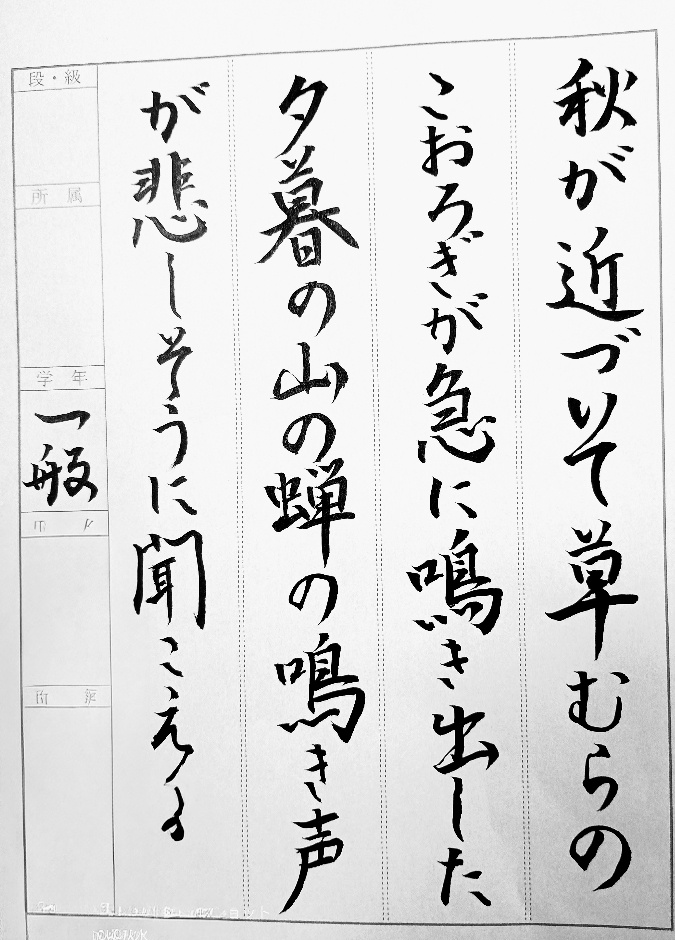 秋が近づいて草むらの
こおろぎが急に鳴き出した
夕暮の山の蝉の鳴き声
が悲しそうに聞こえる
段・級
所属
学年
一般